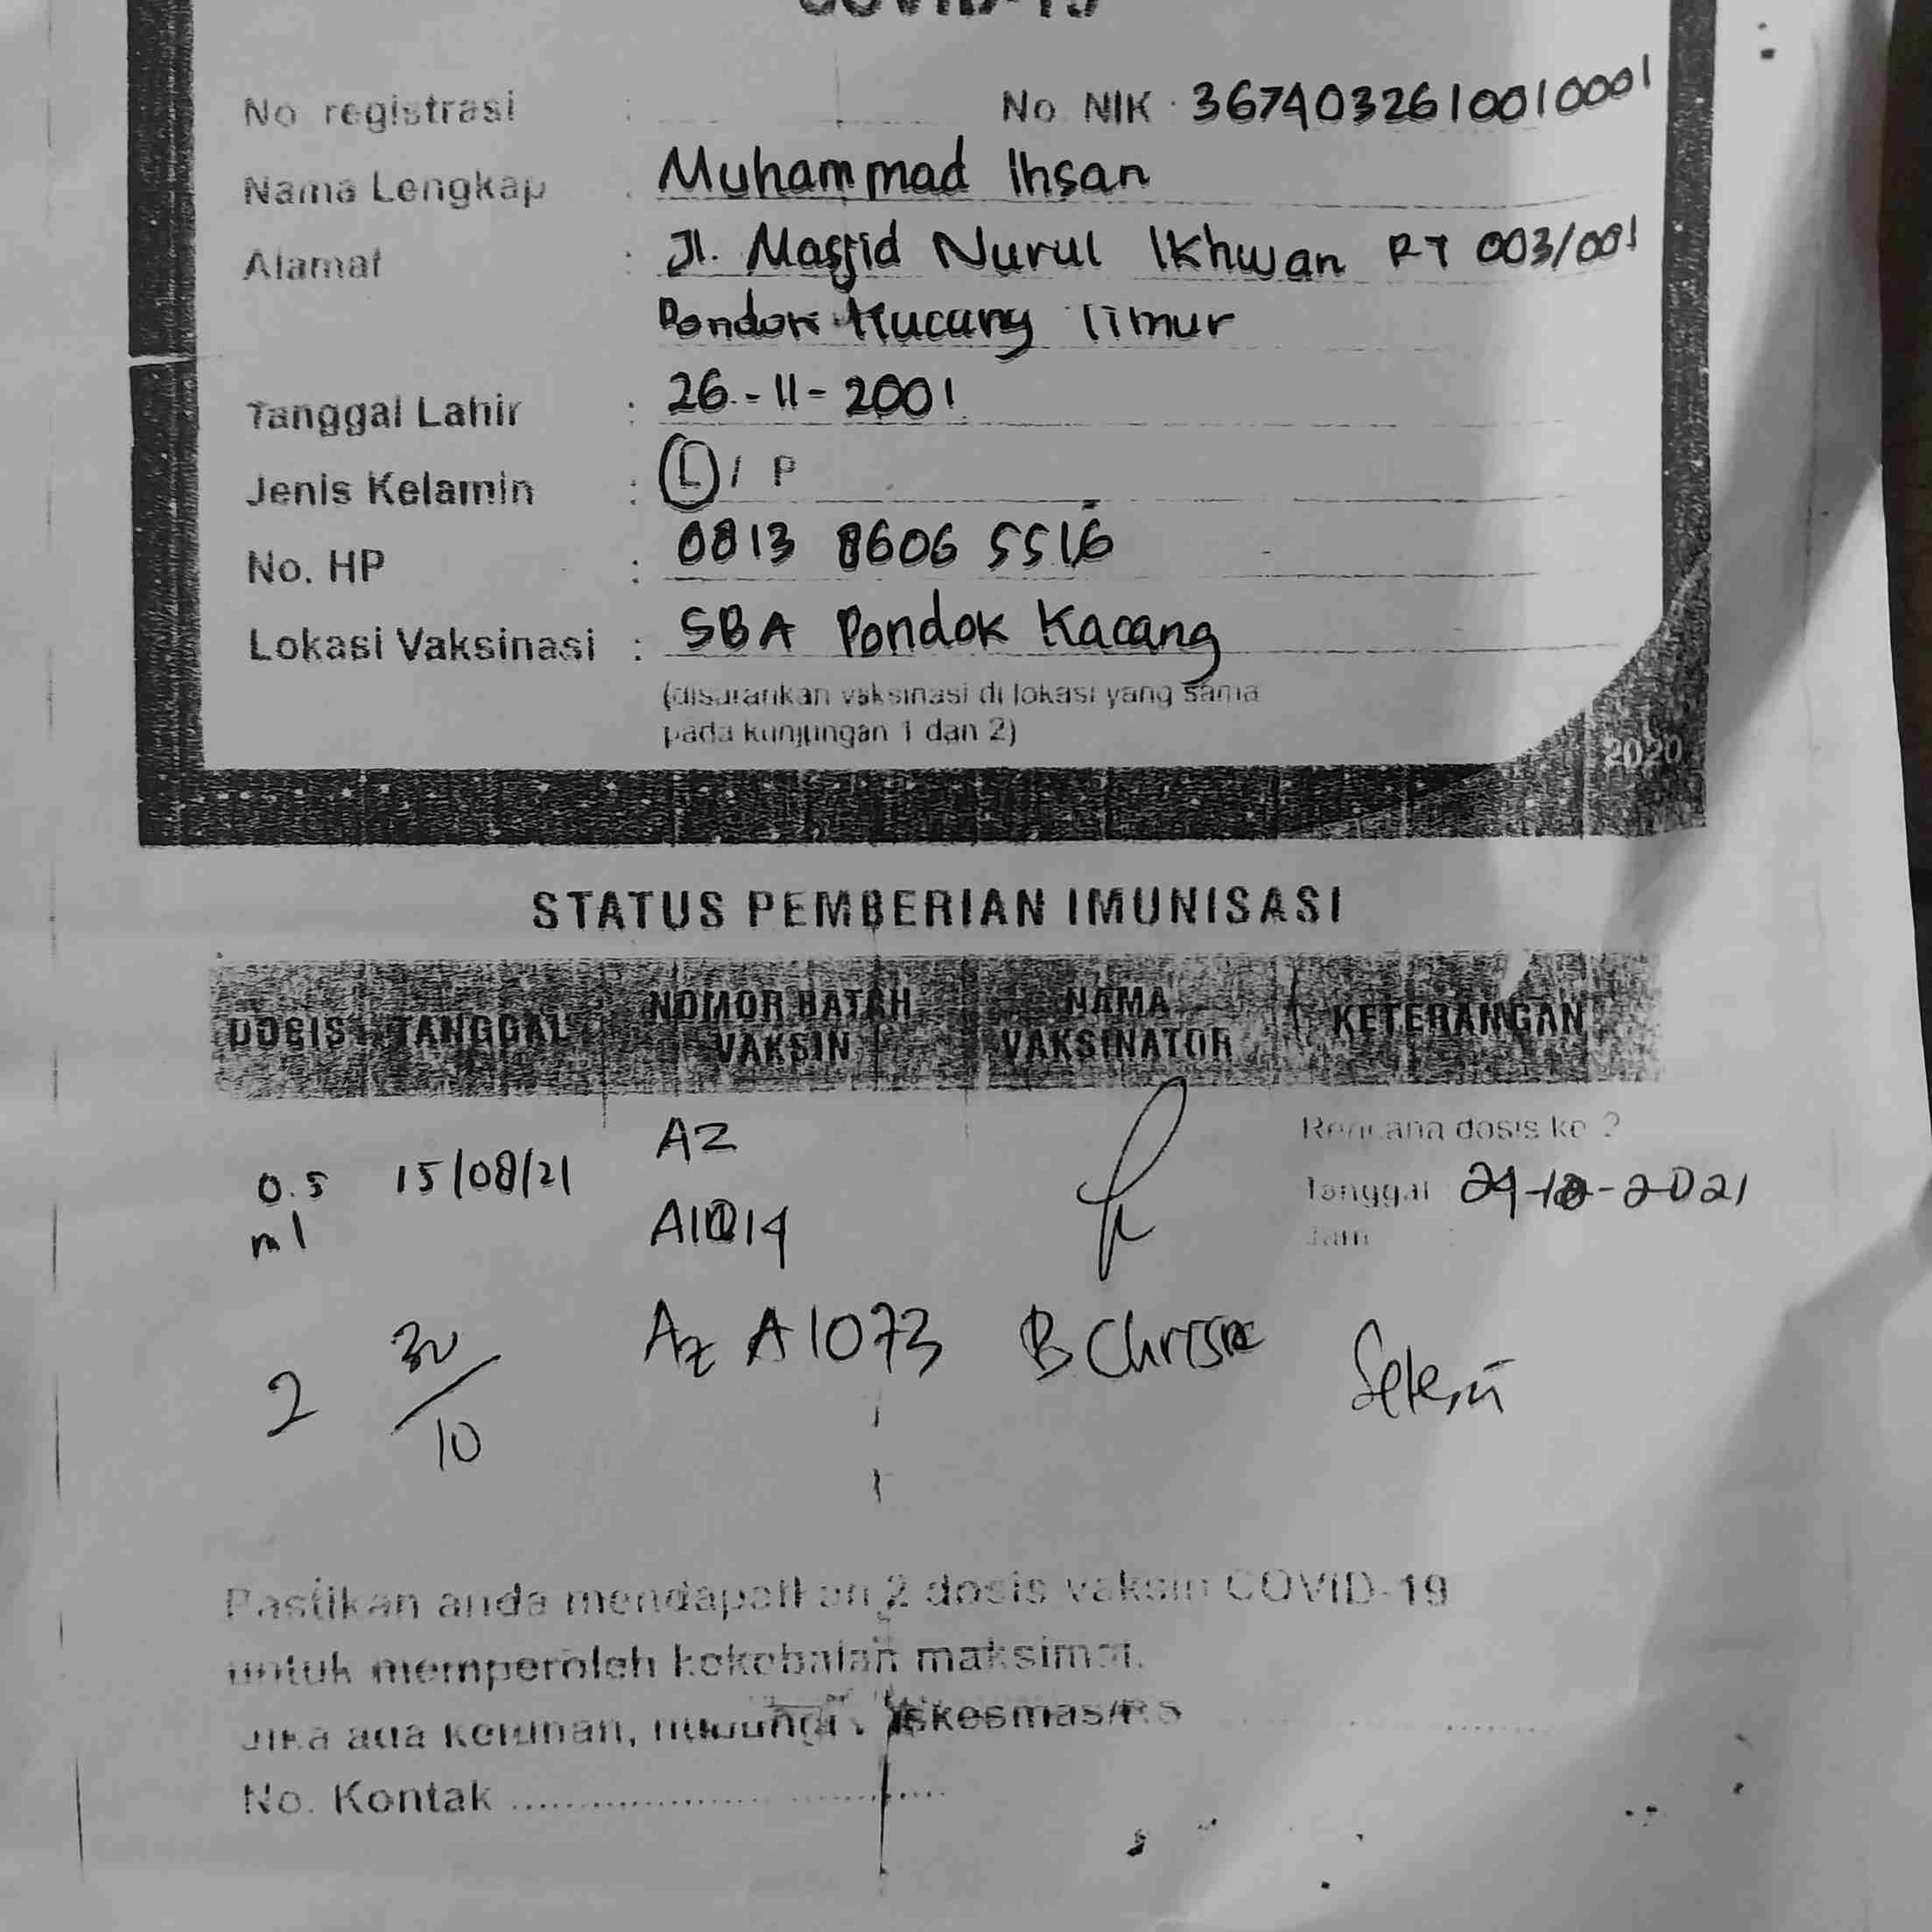 COVID-19
No registrasi : No. NIK : 3674032610010001
Nama Lengkap : Muhammad Ihsan
Alamat : Jl. Masjid Nurul Ikhwan RT 003/001
Pondok Kucang Timur
Tanggal Lahir : 26-11-2001
Jenis Kelamin : L / P
No. HP : 0813 8606 5516
Lokasi Vaksinasi : SBA Pondok Kacang
(disarankan vaksinasi di lokasi yang sama
pada kunjungan 1 dan 2)
2020
STATUS PEMBERIAN IMUNISASI
DOSIS TANGGAL NOMOR BATCH VAKSIN NAMA VAKSINATOR KETERANGAN
0.5 ml 15/08/21 AZ Rencana dosis ke 2
Tanggal -2021
Jam
2 30/10 Az A1073 B Selesai
Pastikan anda mendapatkan 2 dosis vaksin COVID-19
untuk memperoleh kekebalan maksimal.
Jika ada keluhan, hubungi Puskesmas/RS
No. Kontak ..............................